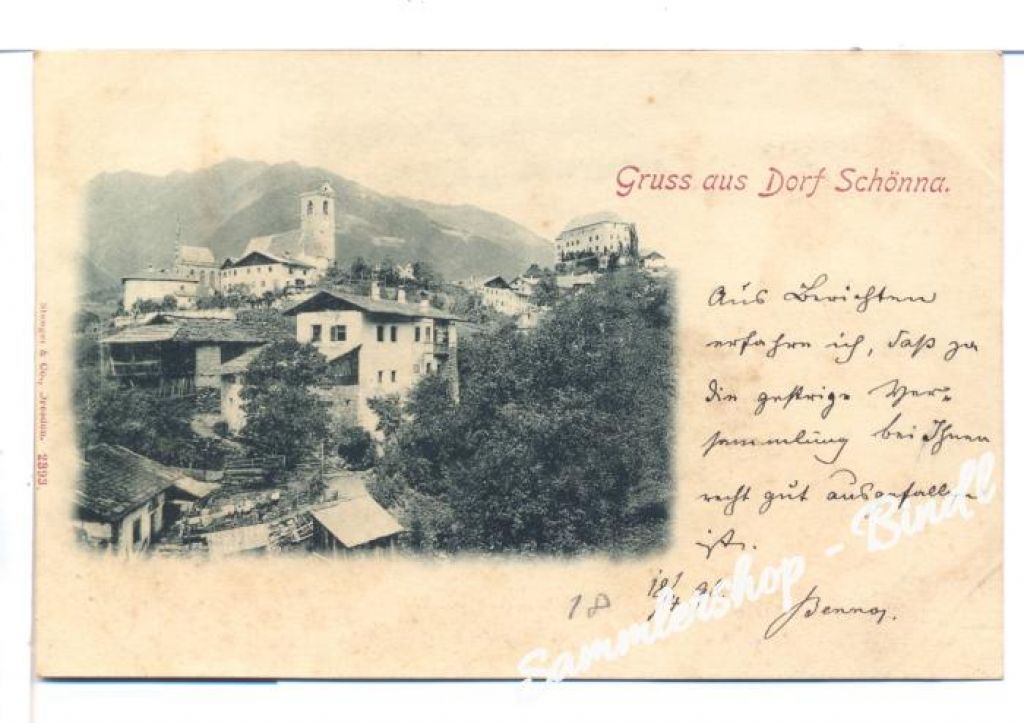 Gruss aus Dorf Schönna.
Aus Berichten
erfahre ich, daß ja
die gestrige Ver-
sammlung bei Ihnen
recht gut ausgefallen
ist.
18
Benno.
Stengel & Co., Dresden. 2393.
Sammlershop - Bindl